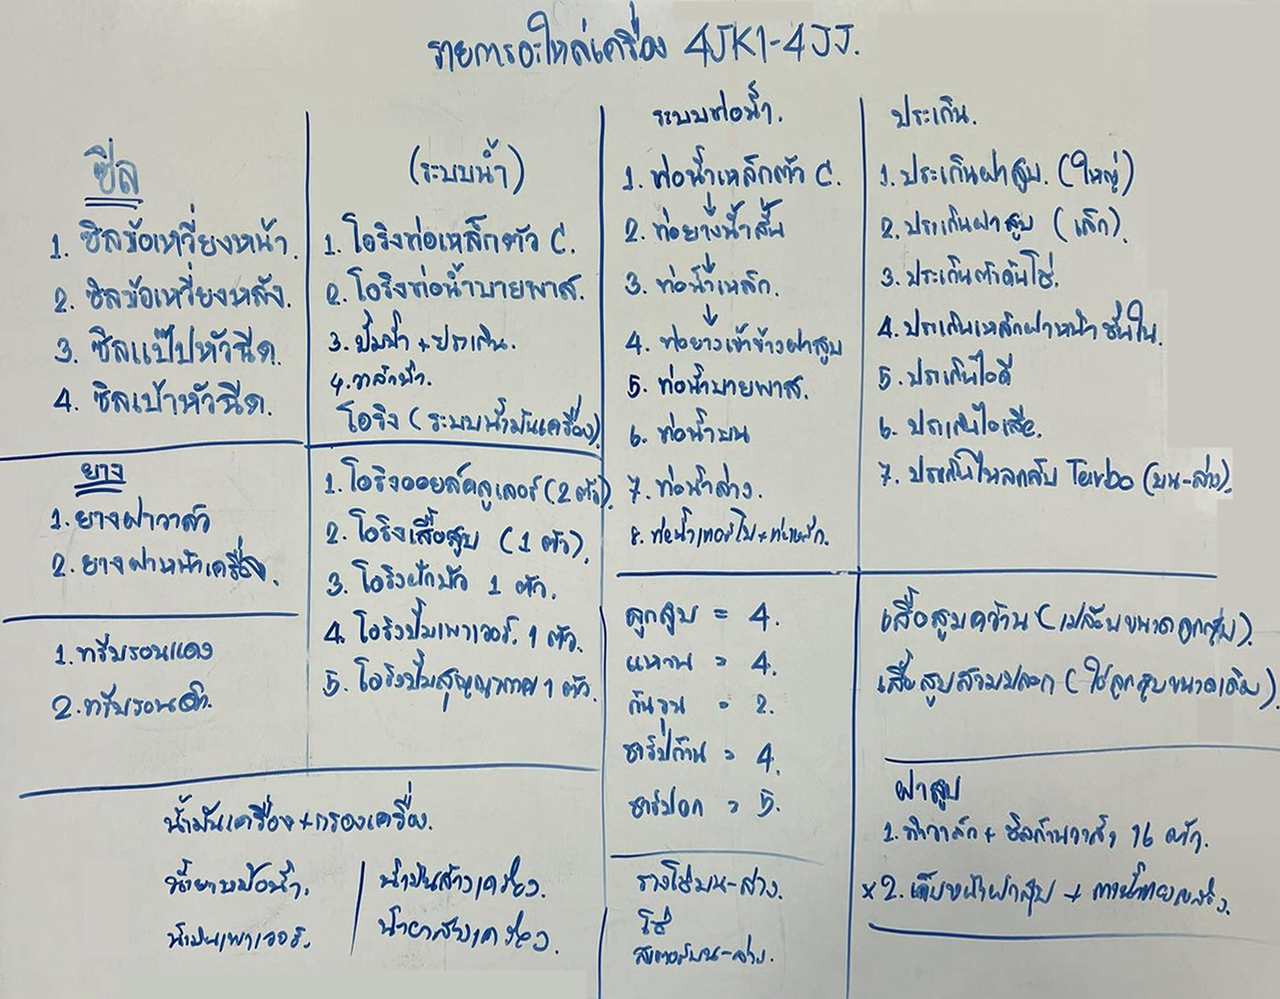 รายการอะไหล่เครื่อง 4JK1-4JJ.
ซีล
1. ซิลข้อเหวี่ยงหน้า.
2. ซิลข้อเหวี่ยงหลัง.
3. ซิลแป๊ปหัวฉีด.
4. ซิลเบ้าหัวฉีด.
ยาง
1. ยางฝาวาล์ว
2. ยางฝาหน้าเครื่อง.
1. ทรีบรอนแดง
2. ทรีบรอนดำ.
(ระบบน้ำ)
1. โอริงท่อเหล็กตัว C.
2. โอริงท่อน้ำบายพาส.
3. ปั้มน้ำ + ประเก็น.
4. วาล์วน้ำ.
โอริง (ระบบน้ำมันเครื่อง)
1. โอริงออยล์คลูเลอร์ (2 ตัว).
2. โอริงเสื้อสูบ (1 ตัว).
3. โอริงฝักบัว 1 ตัว.
4. โอริงปั้มเพาเวอร์. 1 ตัว.
5. โอริงปั้มสุญญากาศ 1 ตัว.
น้ำมันเครื่อง+กรองเครื่อง.
น้ำยาหม้อน้ำ. | น้ำมันล้างเครื่อง.
น้ำมันเพาเวอร์. | น้ำยาล้างเครื่อง.
ระบบท่อน้ำ.
1. ท่อน้ำเหล็กตัว C.
2. ท่อยางน้ำสั้น
3. ท่อน้ำเหล็ก.
4. ท่อยางเข้าข้างฝาสูบ
5. ท่อน้ำบายพาส.
6. ท่อน้ำบน
7. ท่อน้ำล่าง.
8. ท่อน้ำเทอร์โบ+ท่อเหล็ก.
ลูกสูบ = 4.
แหวน = 4.
กันรุน = 2.
ชาร์ปก้าน = 4.
ชาร์ปอก = 5.
รางโซ่บน-ล่าง.
โซ่
สเตอร์บน-ล่าง.
ประเก็น.
1. ประเก็นฝาสูบ. (ใหญ่)
2. ประเก็นฝาสูบ (เล็ก).
3. ประเก็นตัวดันโซ่.
4. ประเก็นเหล็กฝาหน้า ชั้นใน.
5. ประเก็นไอดี
6. ประเก็นไอเสีย.
7. ประเก็นไหลกลับ Turbo (บน-ล่าง).
เสื้อสูบคว้าน (เปลี่ยนขนาดลูกสูบ).
เสื้อสูบสวมปลอก (ใช้ลูกสูบขนาดเดิม).
ฝาสูบ
1. ทำวาล์ว + ซิลก้านวาล์ว 16 ตัว.
×2. เจียหน้าฝาสูบ +